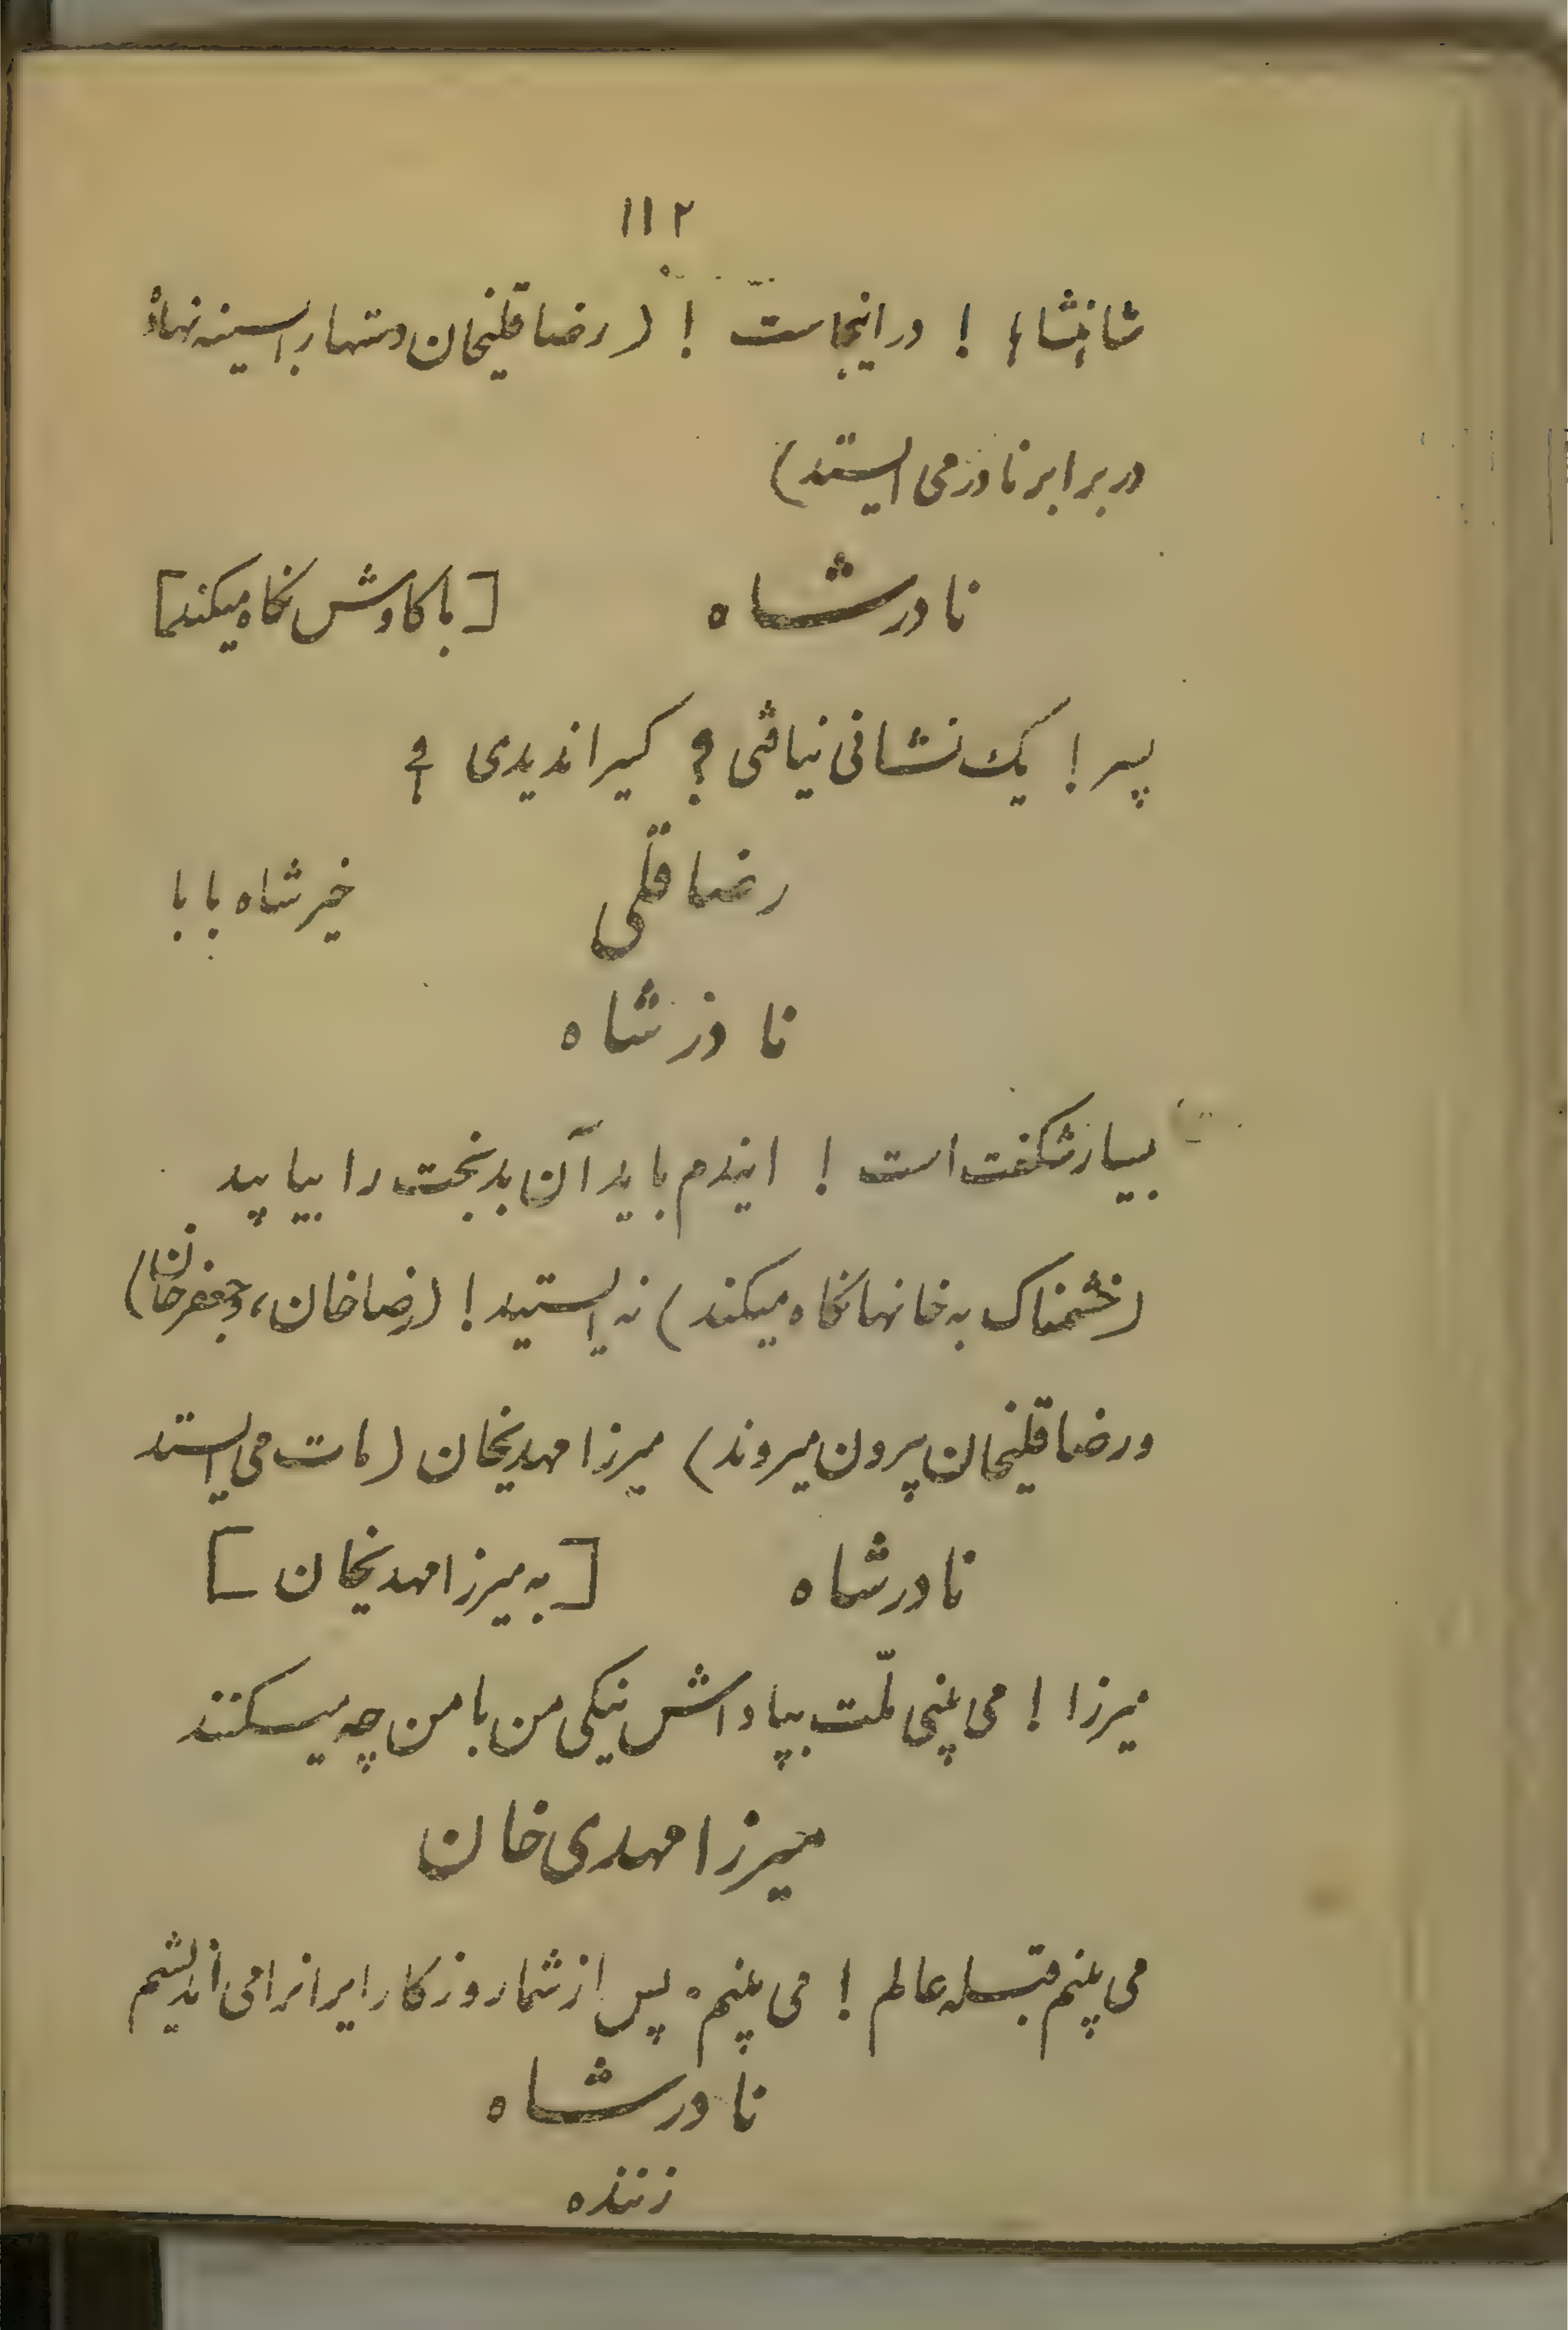 ۱۱۲
شاهنشاها ! در اینجاست ! (رضا قلیخان دستها را بسینه نهاده
در برابر نادر می ایستد)
نادرشاه [با کاوش نگاه میکند]
پسر ! یک نشانی نیافتی ؟ کسیرا ندیدی ؟
رضا قلی خیر شاه بابا
نادر شاه
بسیار شگفت است ! ایندم باید آن بدبخت را بیابید
(خشمناک به خانها نگاه میکند) نه ایستید ! (رضاخان، وجعفرخان)
ورضا قلیخان پیرون میروند) میرزا مهدیخان (مات می ایستد
نادرشاه [به میرزا مهدیخان]
میرزا ! می بینی ملّت بپاداش نیکی من با من چه میکنند
میرزا مهدی خان
می بینم قبله عالم ! می بینم. پس از شما روزگار ایرانرا می اندیشم
نادرشاه
زننده